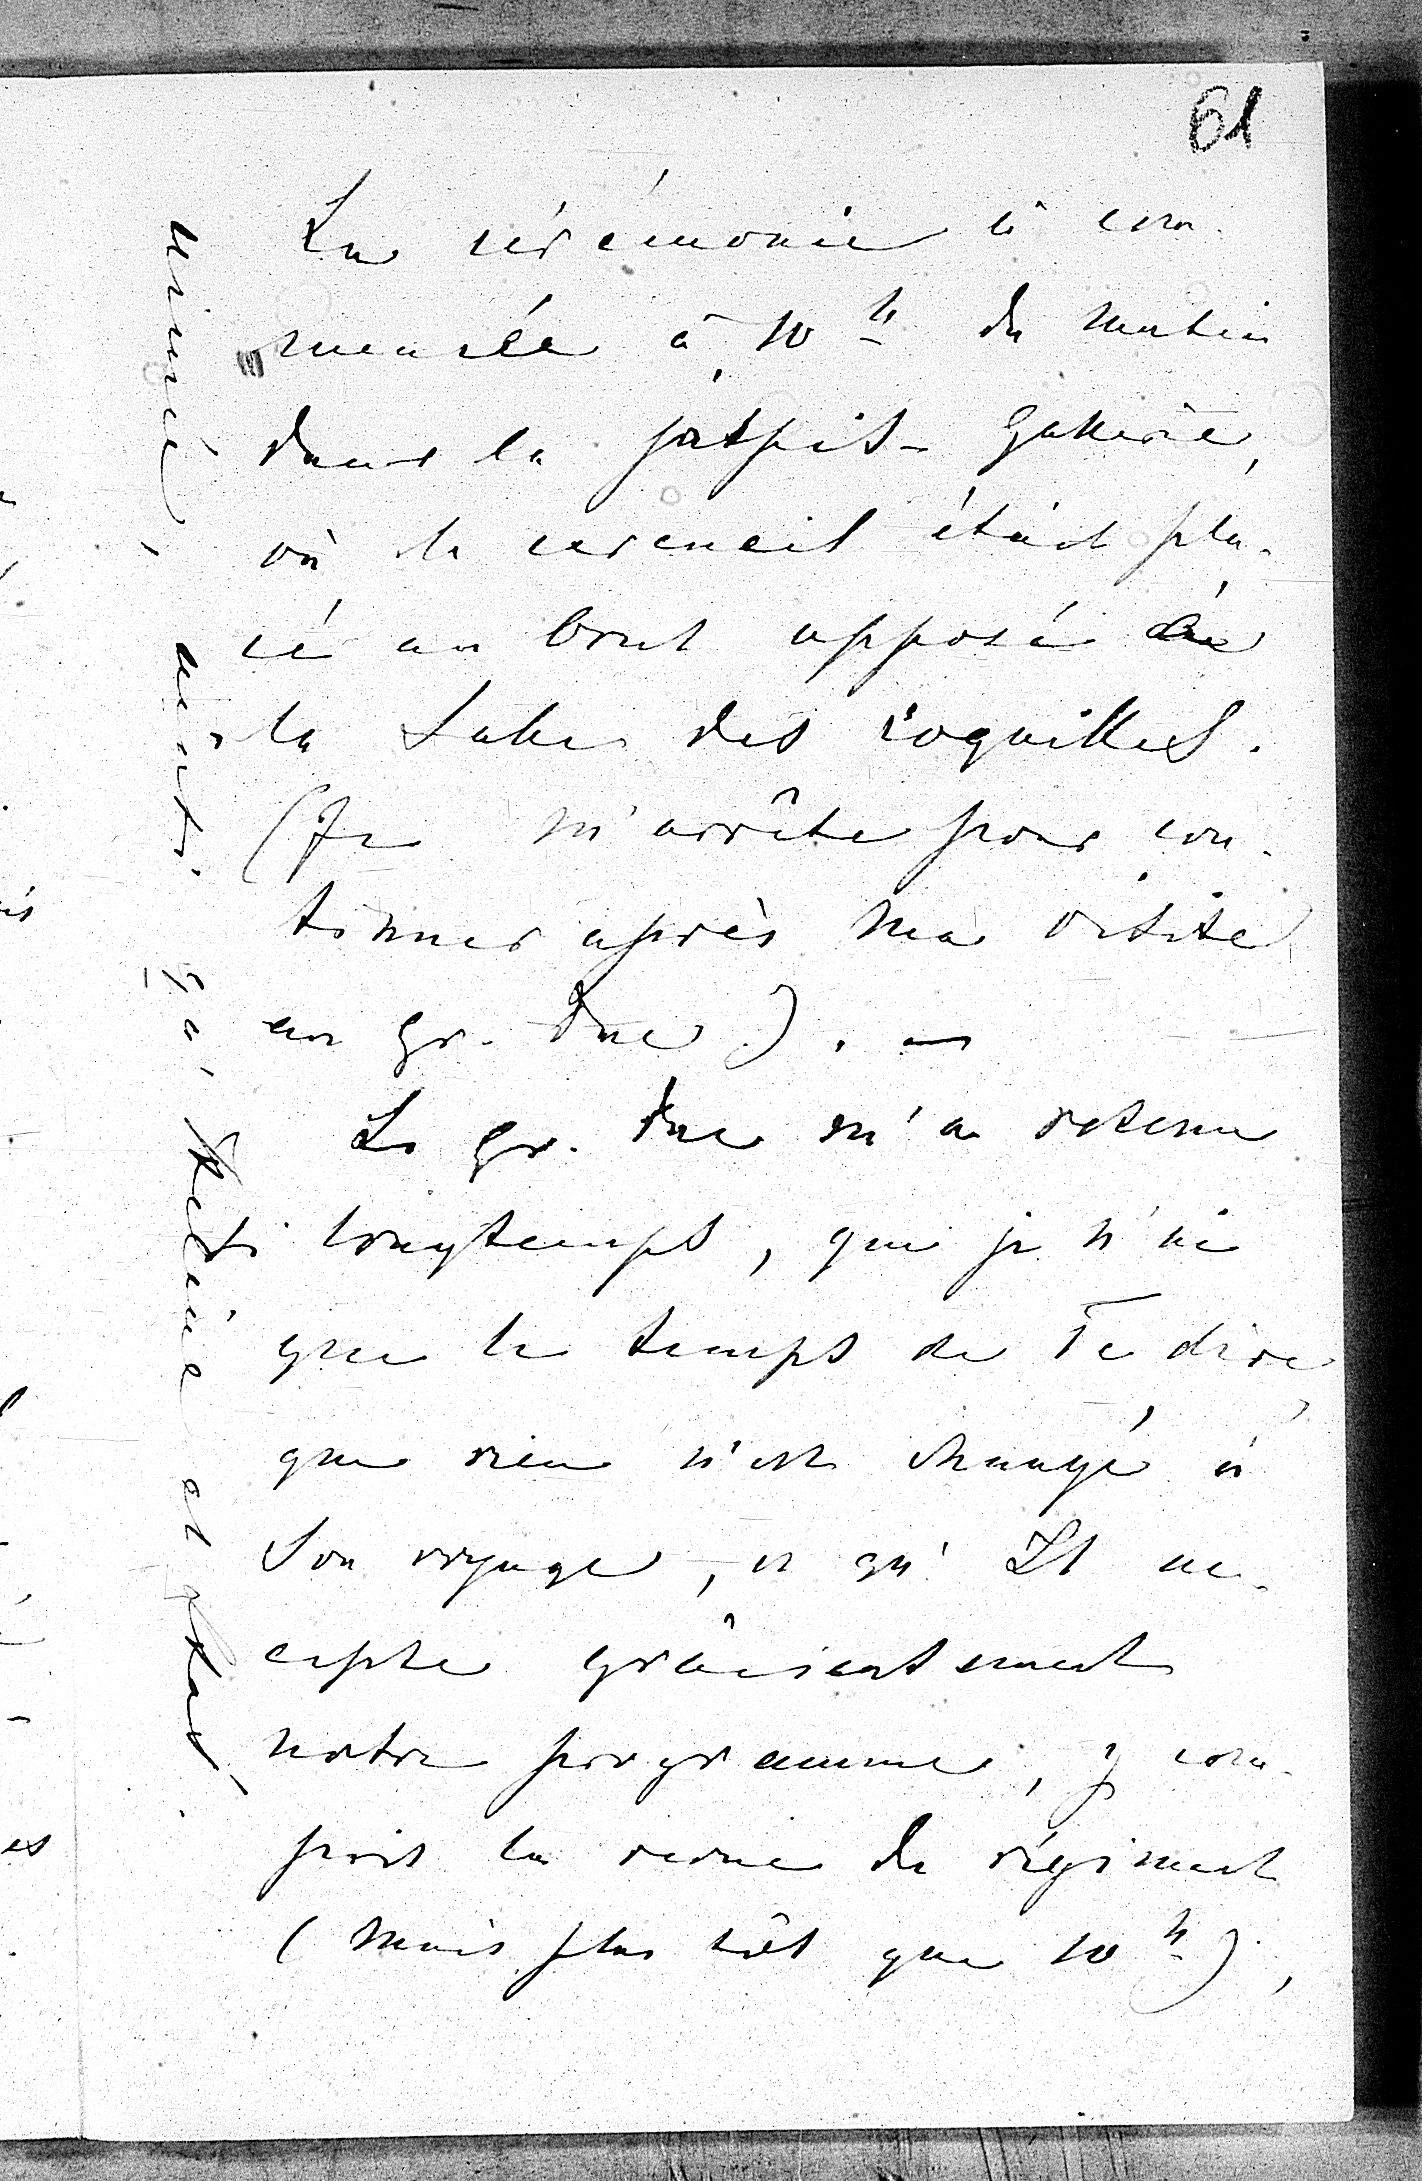 61
La cérémonie à com-
mencée à 10 h du matin
dans la Jaspis-Gallerie,
où le cercueil était pla-
cé au bout opposé de
la Salle des coquilles.
(Je m'arrête pour con-
tinuer après ma visite
au gr. Duc). —
Le gr. Duc m'a retenu
si longtemps, que je n'ai
que le temps de Te dire,
que rien n'est changé à
Son voyage, et qu'Il ac-
cepte grâcieusement
notre programme, y com-
pris la revue du régiment
(mais plus tôt que 10 h),